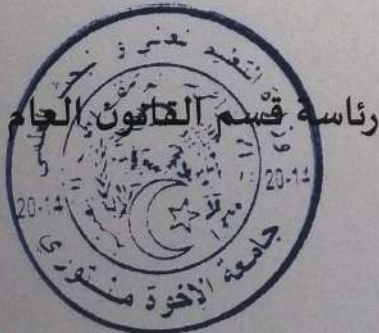 رئاسة قسم القانون العام
التعليم
20-14
20-14
جامعة الإخوة منتوري